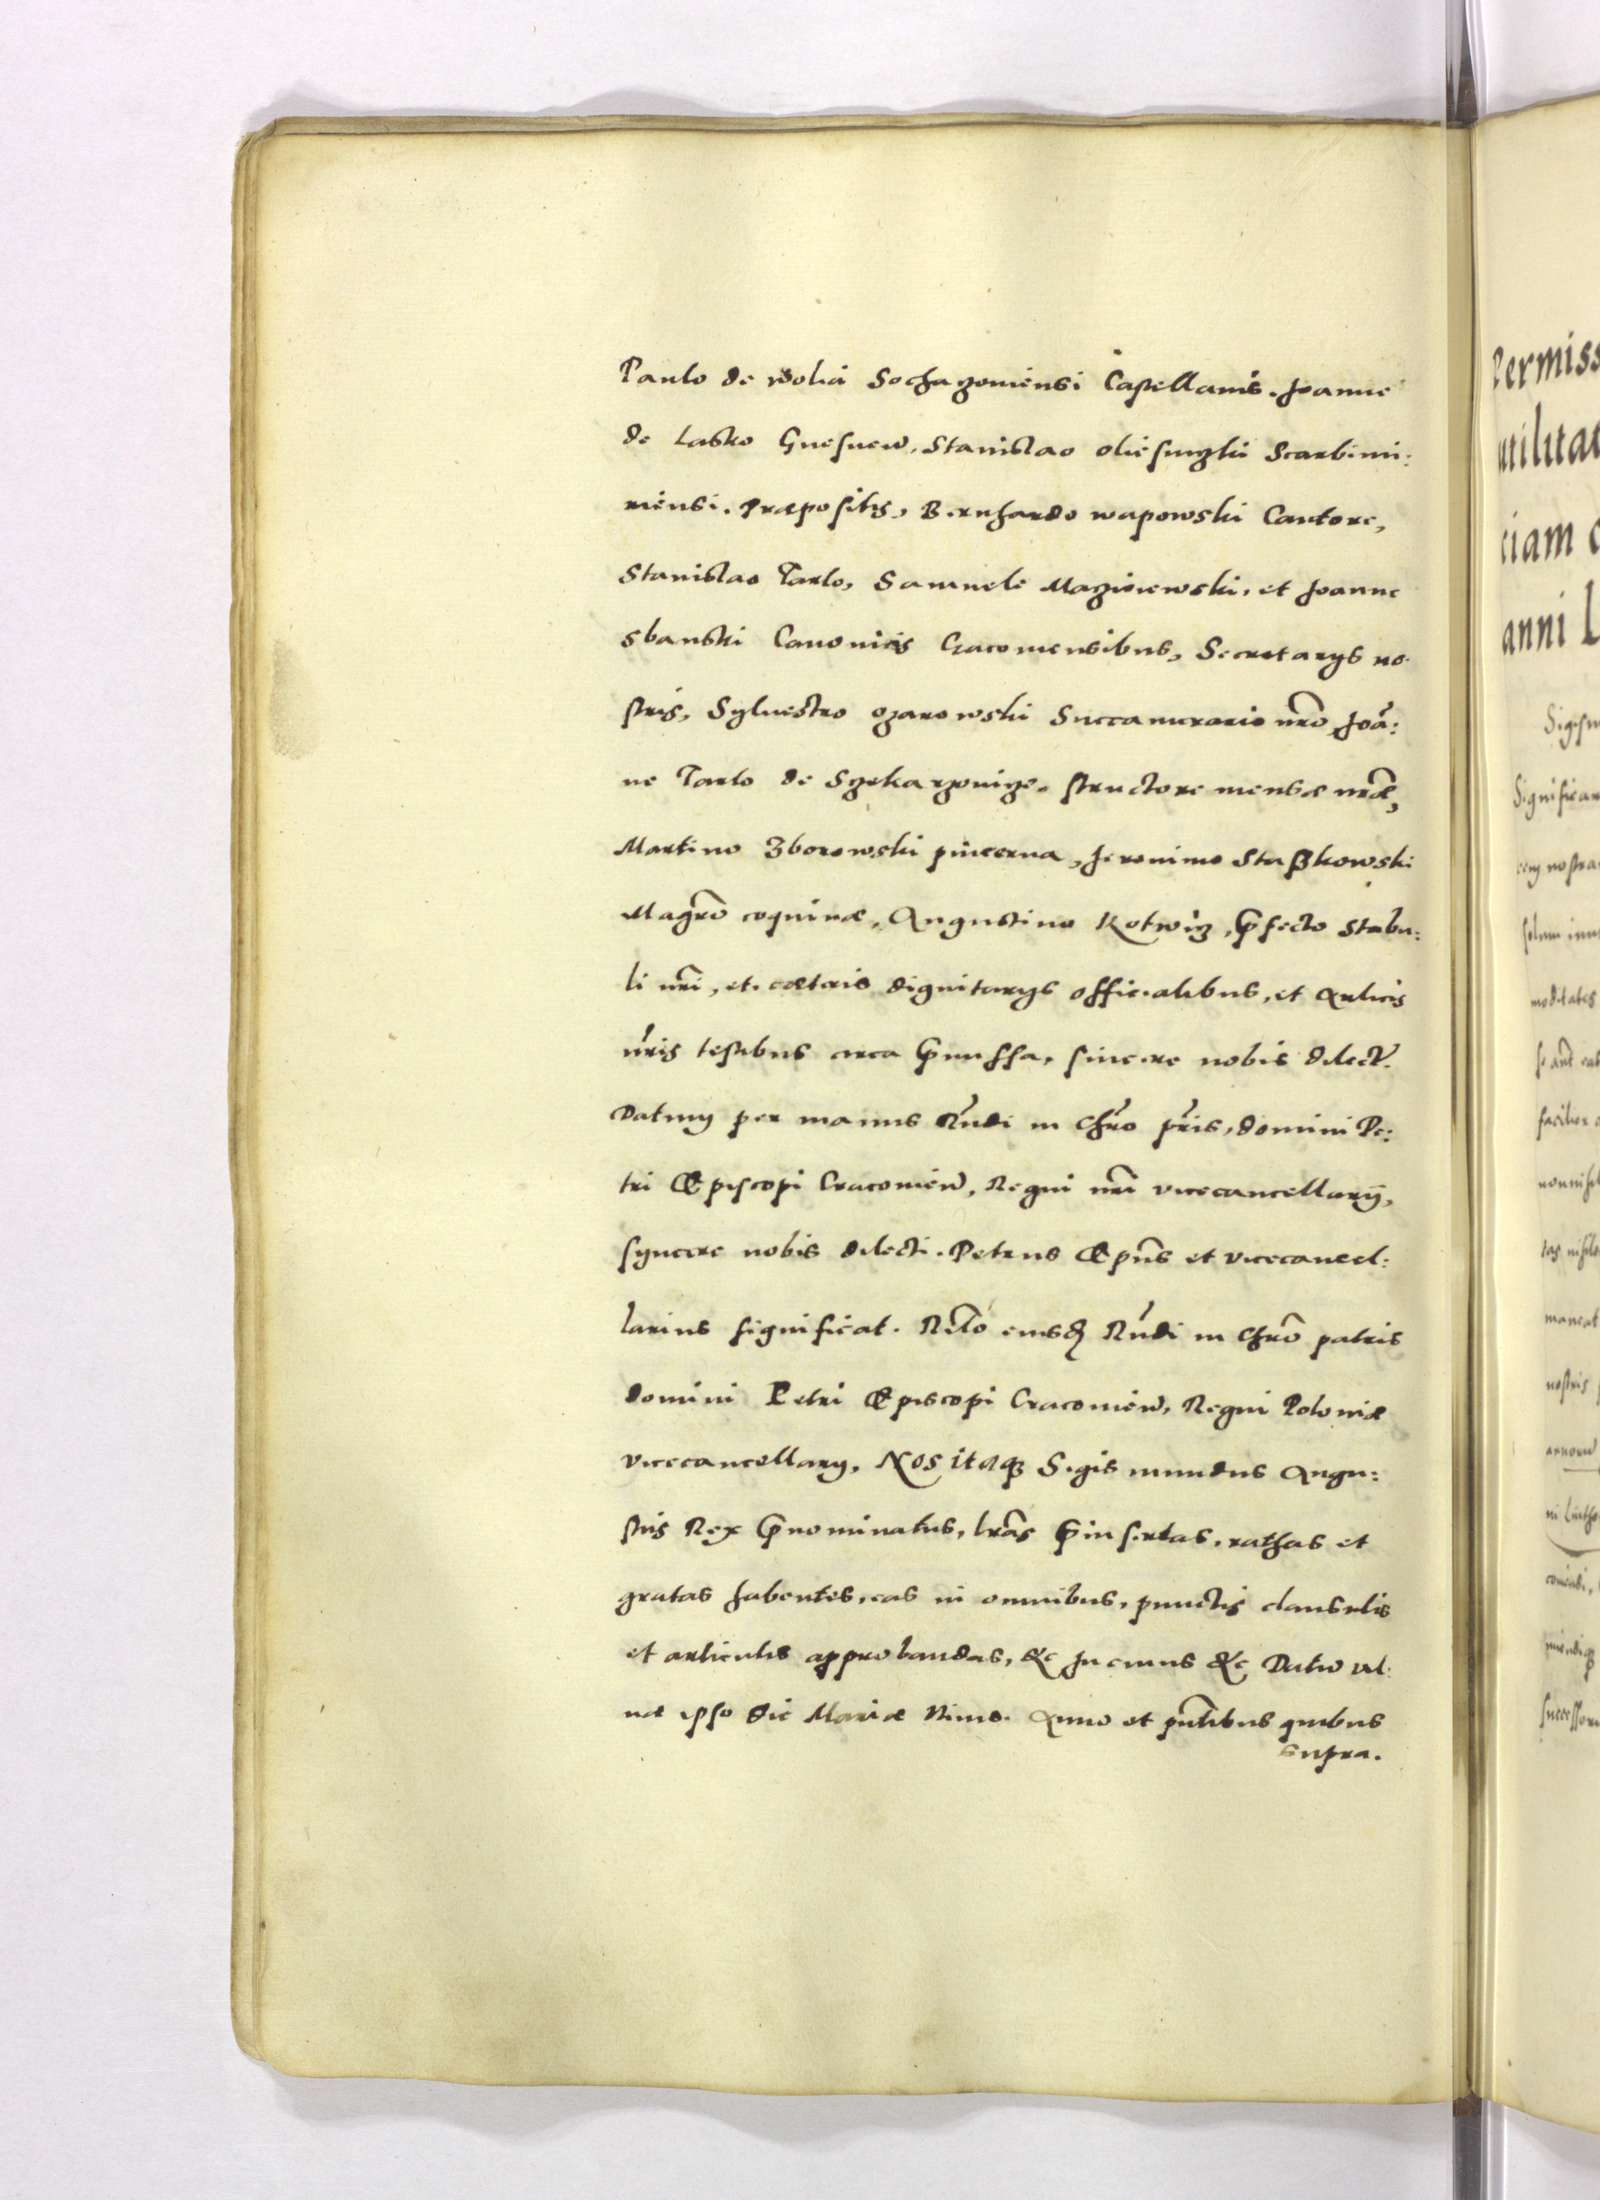 Paulo de wolia Sochazoviensi Castellanis. Joanne
de Lasko Gnesnen̄, Stanislao olieſnyzki Scarbimi:
riensi. Præpositis, Bernhardo wapowski Cantore,
Stanislao Tarlo, Samuele Magieiewski, et Joanne
sbanski Canonicis Cracoviensibus, Secretarijs no
stris, Sylvestro ozarowski Succamerario nr̃o, Joã:
ne Tarlo de Szekarzovize. structore mensæ nr̃æ,
Martino Zborowski pincerna, Jeronimo Staßkowski
Magr̃o coquinæ, Augustino Kotwiz, p̃fecto Stabu:
li nr̃i, et cæteris dignitarijs officialibus, et Aulicis
nr̃is testibus circa p̃missa, sincere nobis dilect̃.
Datum per manus Rñdi in Chr̃o pr̃is, domini Pe:
tri Episcopi Cracovien̄, Regni nr̃i vicecancellarij,
syncere nobis dilecti. Petrus Ep̃us et vicecancel:
larius significat. Rel̃o eiusd Rñdi in Chr̃o patris
domini Petri Episcopi Cracovien̄, Regni Poloniæ
vicecancellarij, Nos itaq Sigismundus Augu:
stus Rex p̃nominatus, lr̃as p̃insertas, rathas et
gratas habentes, eas in omnibus, punctis clausulis
et articulis approbandas, &c Jn cuius &c Datum vil:
næ ipso die Mariæ Nivis. Anno et p̃ntibus quibus
supra.
Permiss
utilitat
ciam
anni L
Significar
nostra
moditates
facilior
maneat
nostris